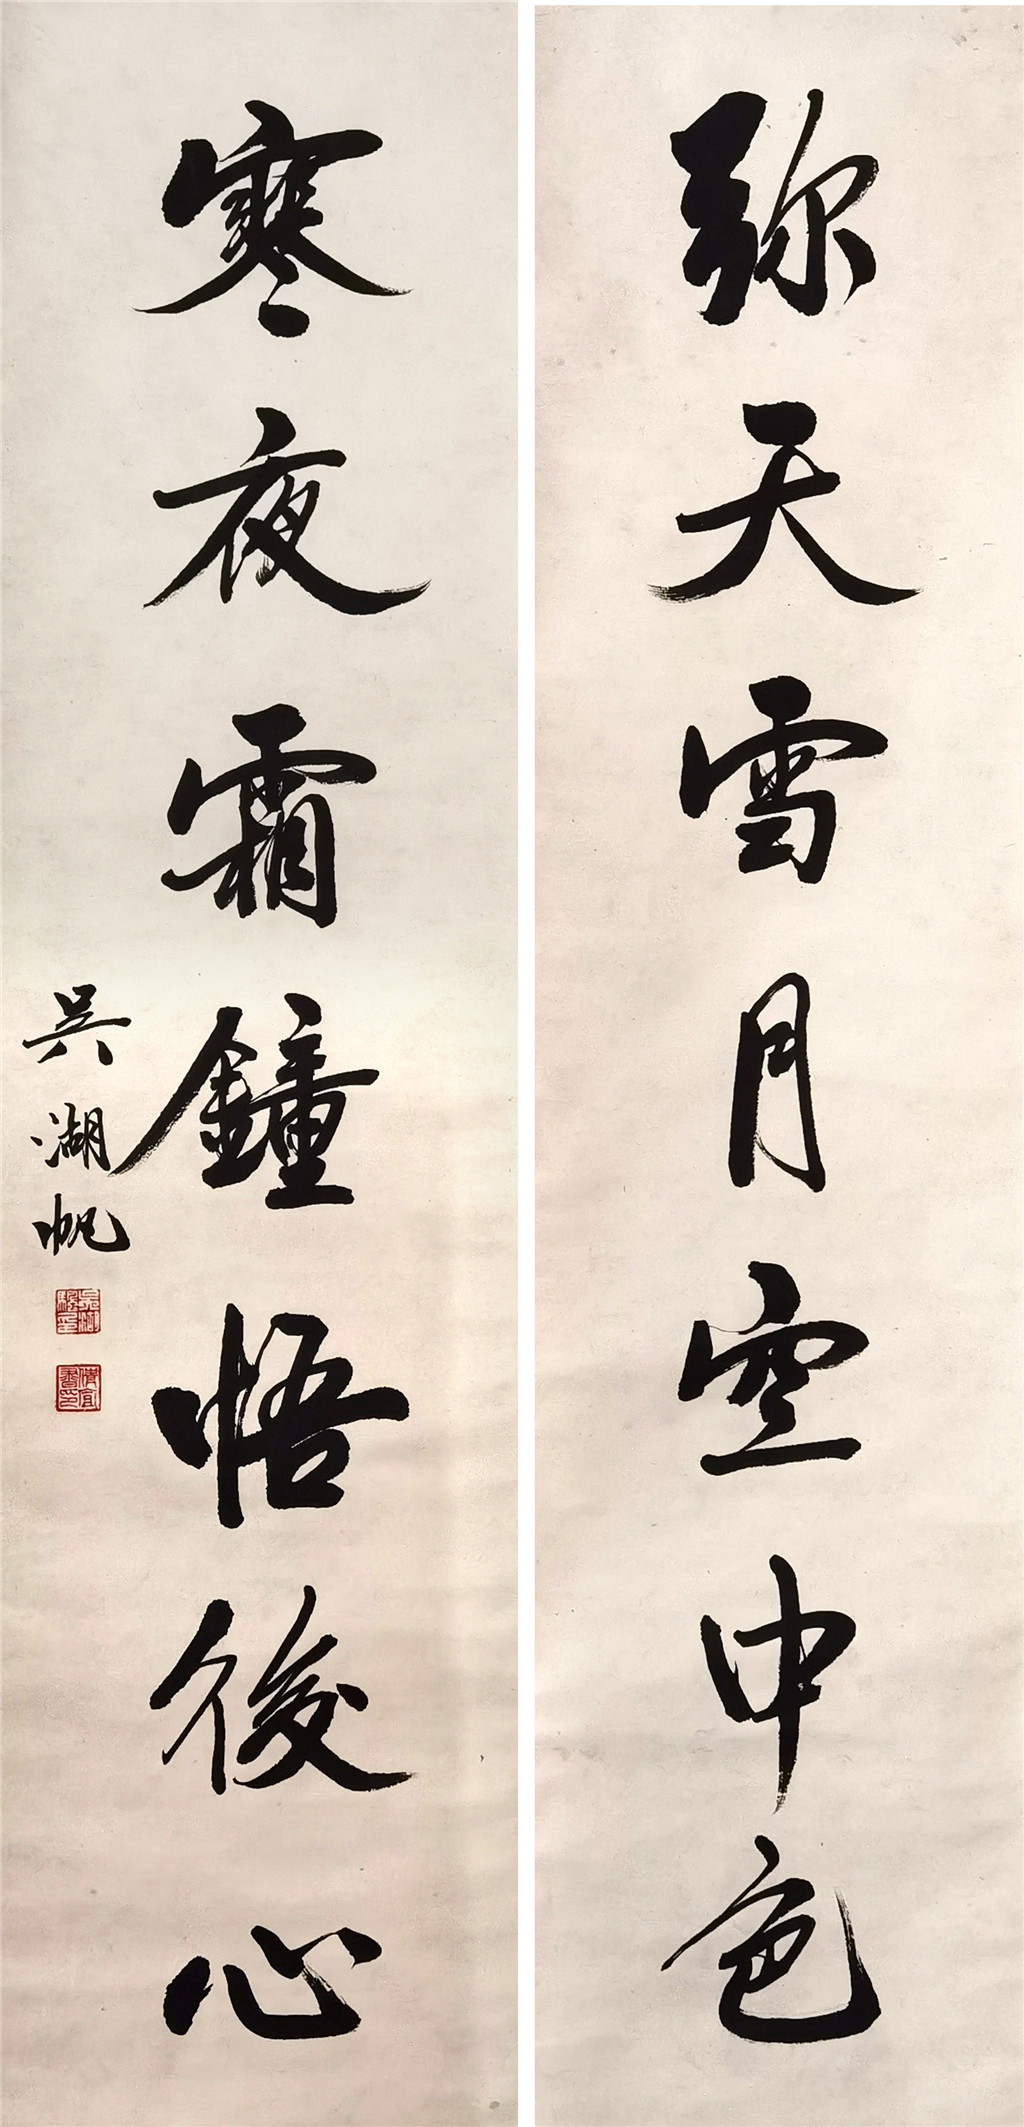 弥天雪月空中色
寒夜霜鐘悟後心
吳湖帆